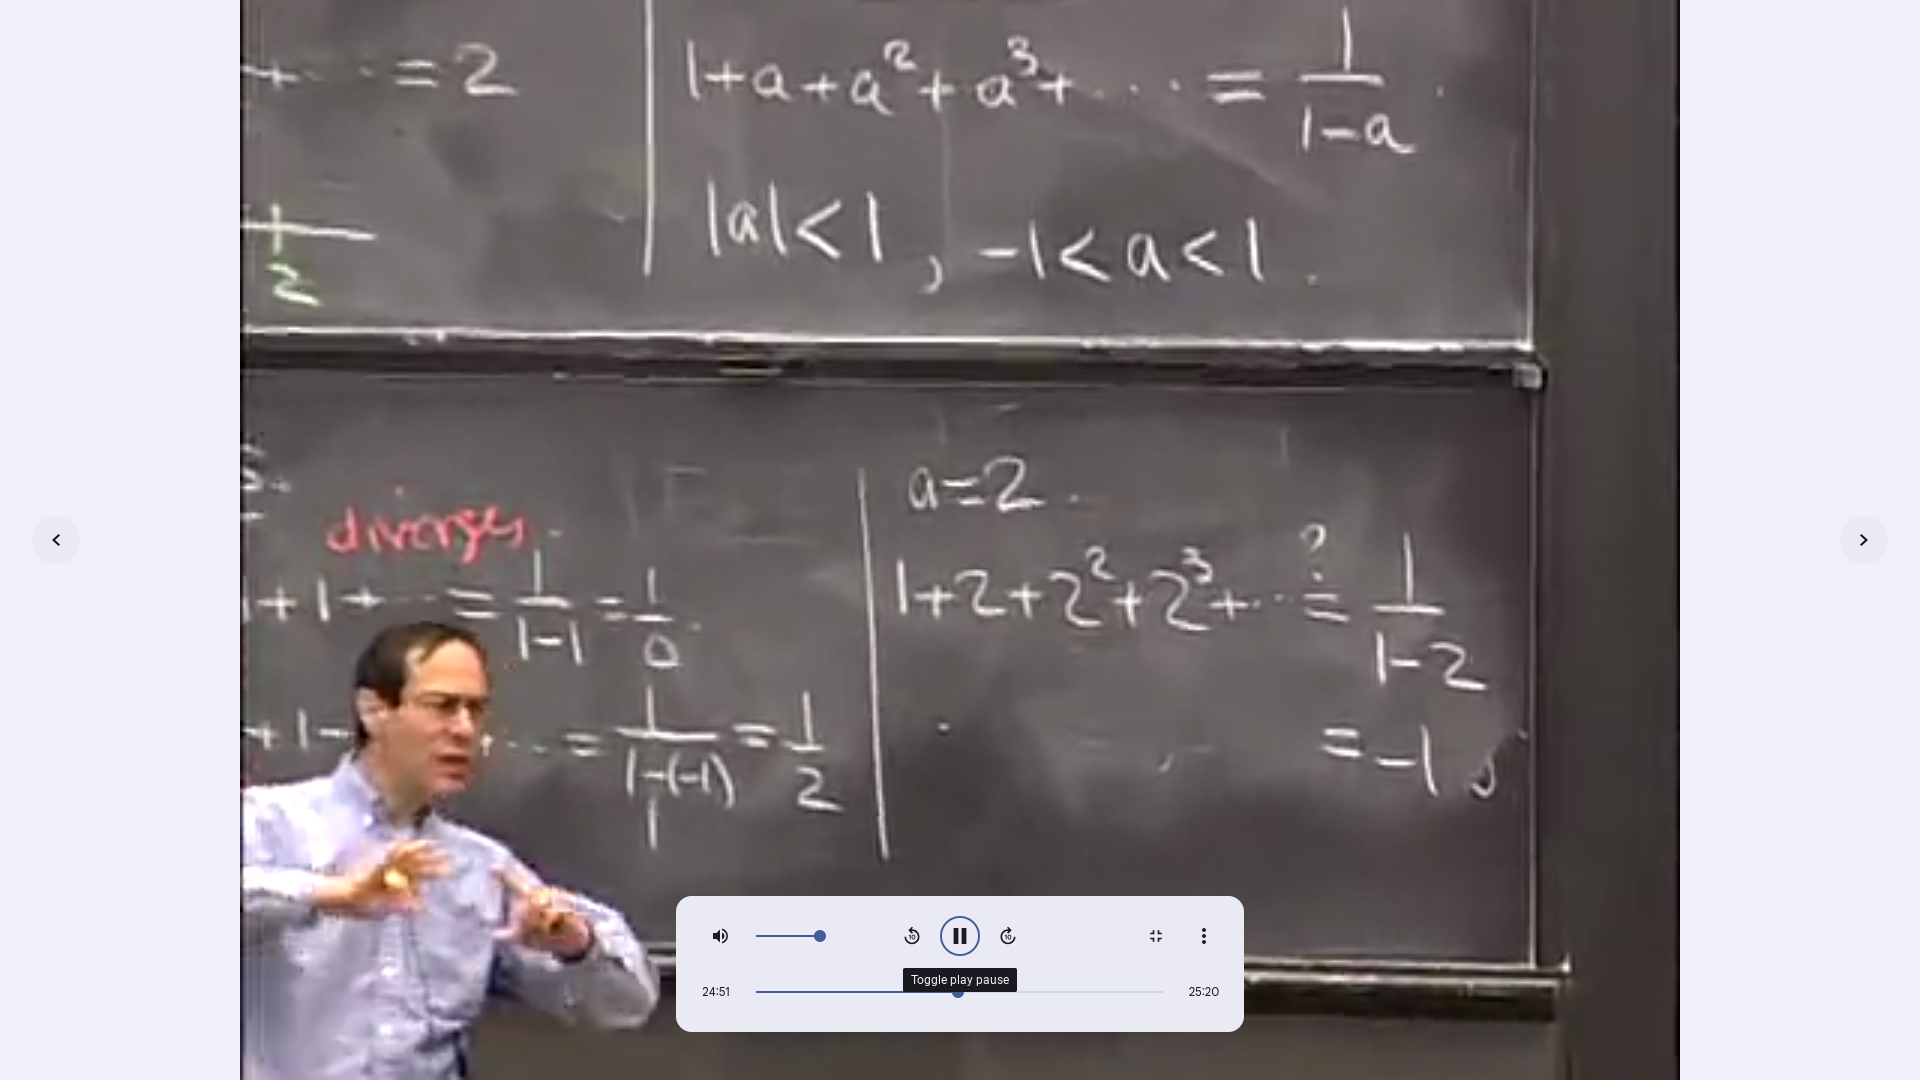 + ... = 2
1+a+a²+a³+ ... = 1/(1-a).
1/2
|a|<1, -1<a<1.
diverges.
1+1+ ... = 1/(1-1) = 1/0.
+1- + ... = 1/(1-(-1)) = 1/2
a=2.
1+2+2²+2³+... ?= 1/(1-2)
= -1
10
10
Toggle play pause
24:51
25:20